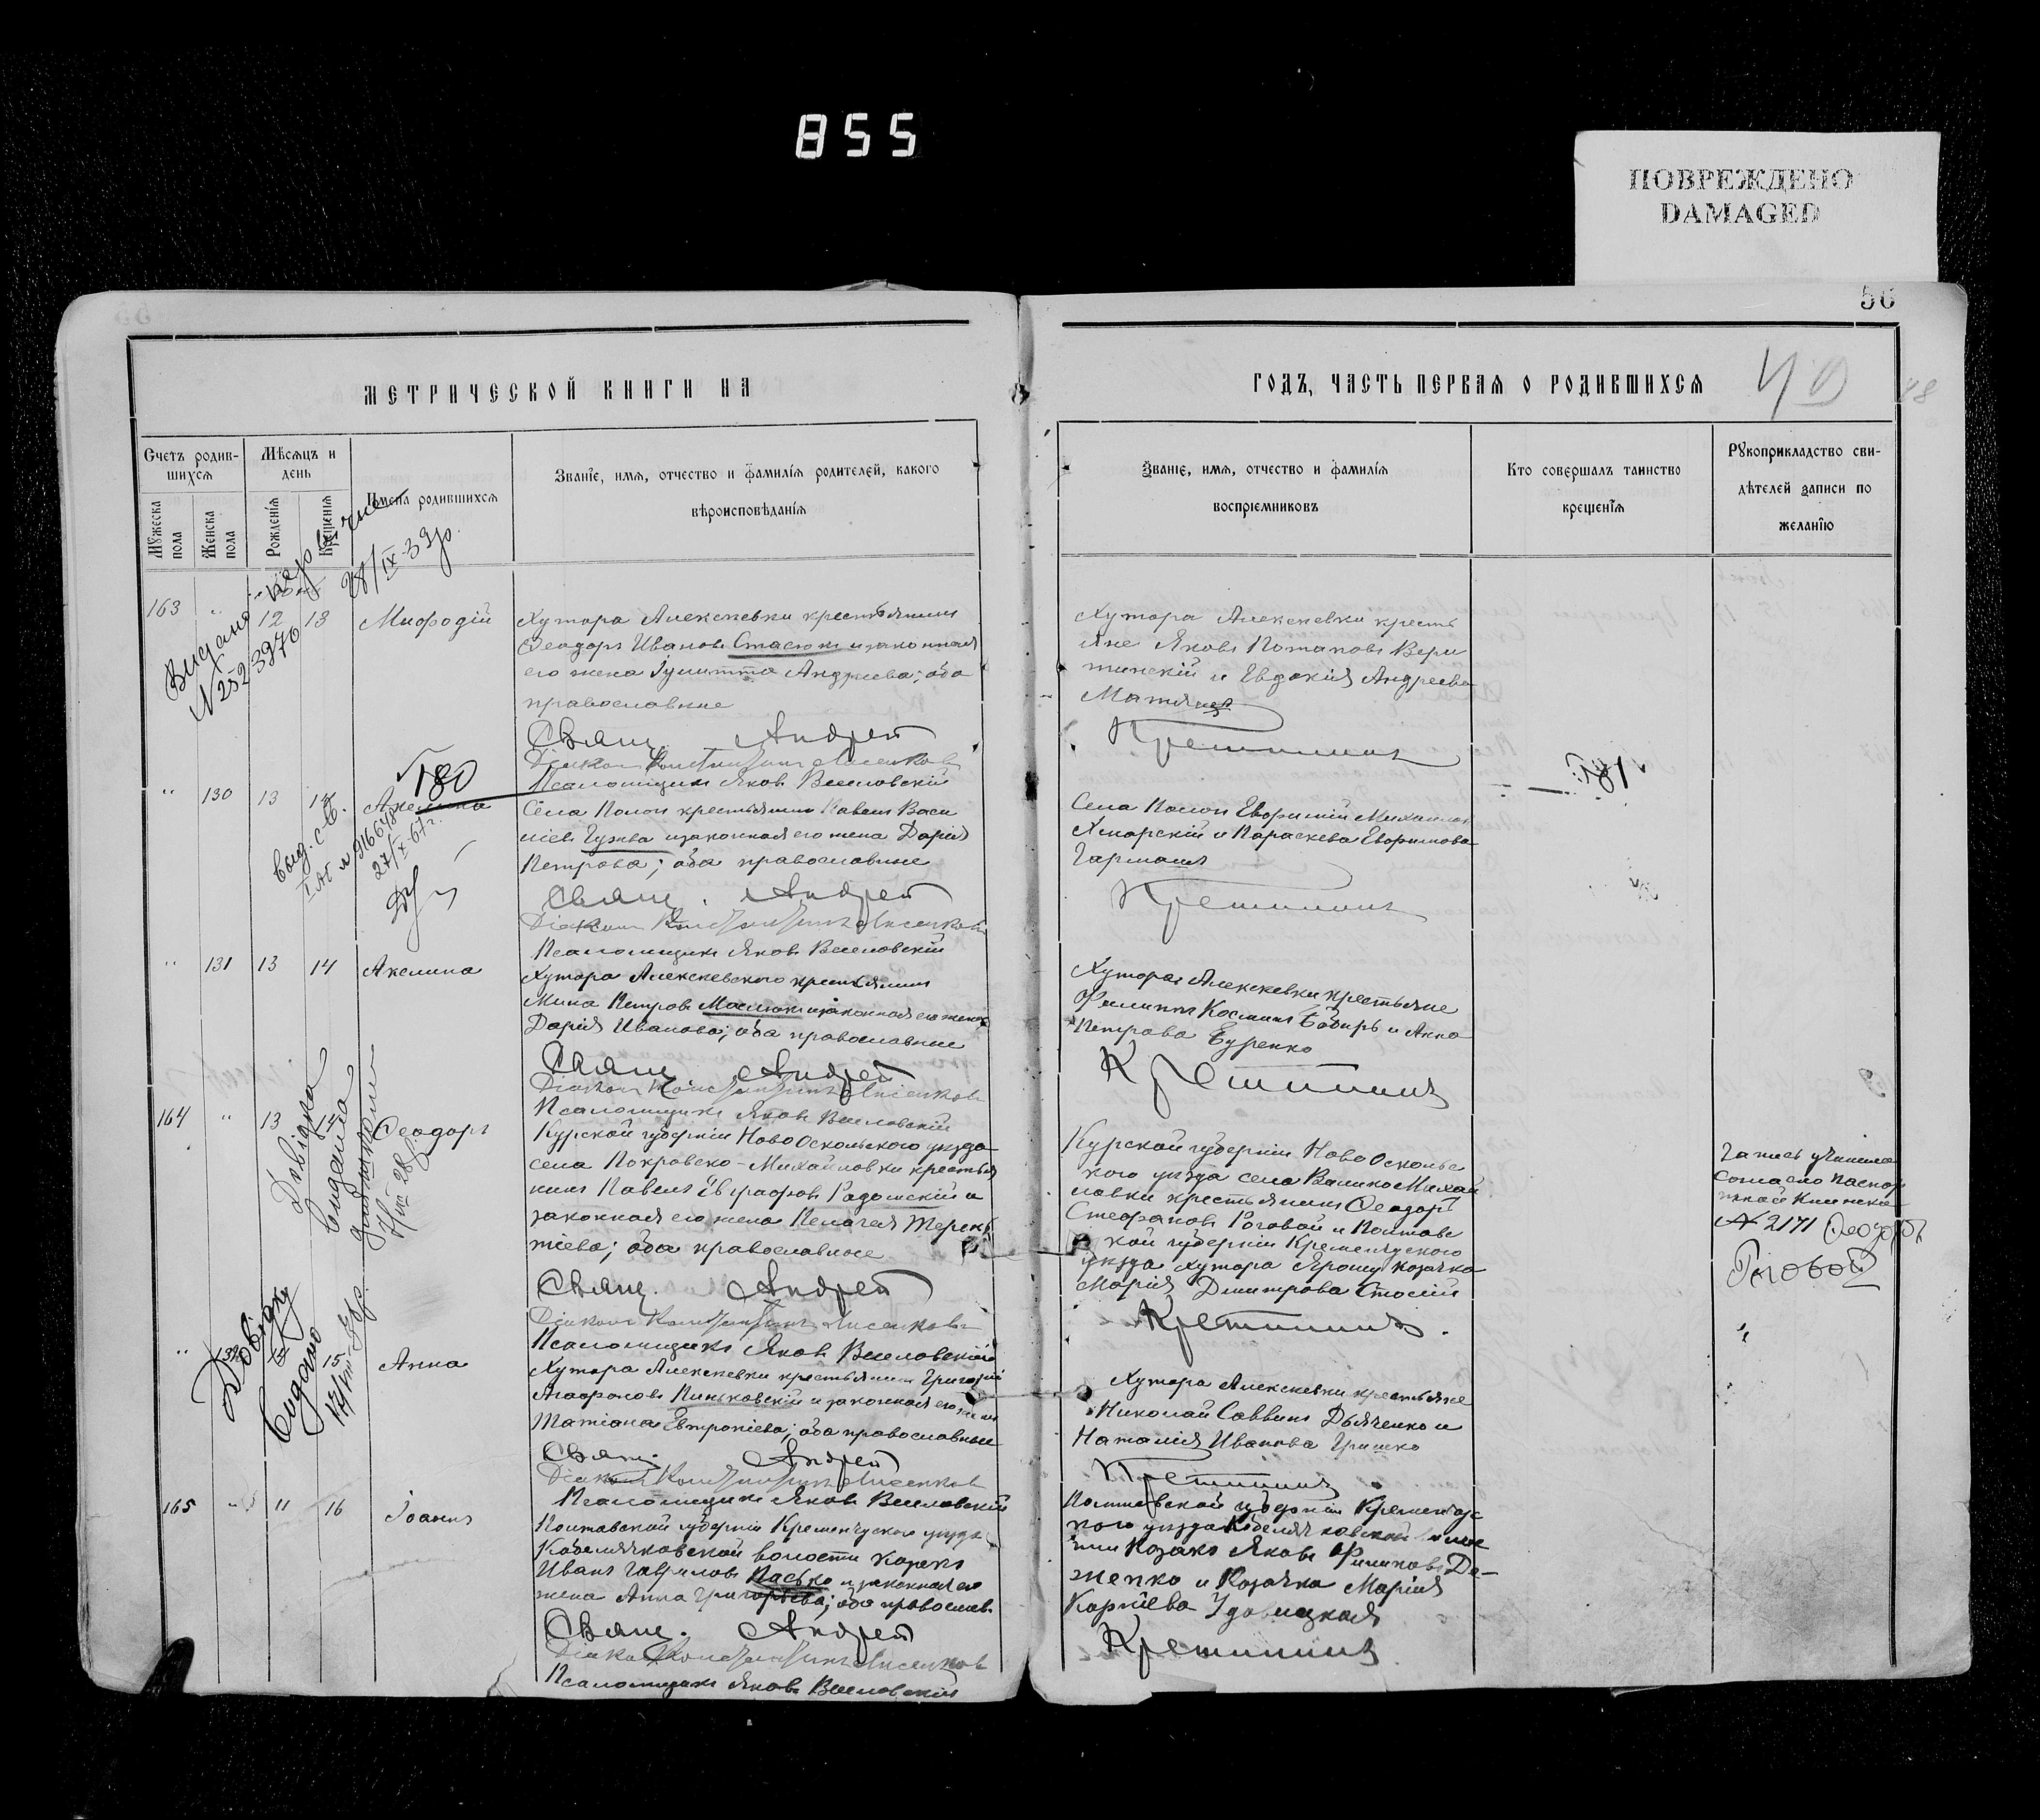 855
ПОВРЕЖДЕНО
DAMAGED
56
МЕТРИЧЕСКОЙ КНИГИ НА
ГОДЪ, ЧАСТЬ ПЕРВАЯ О РОДИВШИХСЯ
40
48
Счетъ родив-
шихся
Мужеска пола
Женска пола
Мѣсяцъ и
день
Рожденія
Крещенія
Имена родившихся
Званіе, имя, отчество и фамилія родителей, какого
вѣроисповѣданія
Званіе, имя, отчество и фамилія
воспріемниковъ
Кто совершалъ таинство
крещенія
Рукоприкладство сви-
дѣтелей записи по
желанію
Видано
28/IX-39р.
163 " 12 13 Мифодій
Хутора Алексѣевки крестьянинъ
Ѳеодоръ Ивановъ Стасюкъ и законная
его жена Іулитта Андреева; оба
православные
Свящ. Андрей
Діаконъ Константинъ Лисенковъ
Псаломщикъ Яковъ Веселовскій
Хутора Алексѣевки кресть
яне Яковъ Потаповъ
и Евдокія Андреева
Крешинъ
180
181
" 130 13 14 Акелина
Выд. с-б.
27/X-67г.
Села Попои крестьянинъ Павелъ Васи
ліев Гужва и законная его жена Дарія
Петрова; оба православные
Свящ. Андрей
Діаконъ Константинъ Лисенковъ
Псаломщикъ Яковъ Веселовскій
Села Попои Евфимій Михайловъ
и Параскева Евфимова
Гармашъ
Крешинъ
" 131 13 14 Акелина
Хутора Алексѣевского крестьянинъ
Мина Петровъ Маслюкъ и законная его жена
Дарія Иванова; оба православные
Свящ. Андрей
Діаконъ Константинъ Лисенковъ
Псаломщикъ Яковъ Веселовскій
Хутора Алексѣевки крестьяне
Филиппъ Космин и Анна
Петрова Буренко
Крешинъ
164 " 13 14 Ѳеодоръ
Довідка
видана
Курской губерніи НовоОскольского уѣзда
села Покровско-Михайловки крестья
нинъ Павелъ Евграфовъ Радомскій и
законная его жена Пелагея Терень
тіева; оба православные
Свящ. Андрей
Діаконъ Константинъ Лисенковъ
Псаломщикъ Яковъ Веселовскій
Курской губерніи НовоОскольс
кого уѣзда села ВеликоМихай
ловки крестьянинъ Ѳеодоръ
Стефановъ Роговой и Полтавс
кой губерніи Кременчугского
уѣзда хутора козачка
Марія Дмитрова
Крешинъ
Запись учинена
согласно паспор
тной книжки
№ 2171 Ѳеодоръ
Роговой
" 132 15 Анна
Довідку
видано
Хутора Алексѣевки крестьянинъ Григорій
Агафоновъ Пиньковскій и законная его жена
Татіана Евтропіева; оба православные
Свящ. Андрей
Діаконъ Константинъ Лисенковъ
Псаломщикъ Яковъ Веселовскій
Хутора Алексѣевки крестьяне
Николай Саввинъ Дьяченко и
Наталія Иванова Гришко
Крешинъ
165 " 11 16 Іоаннъ
Полтавской губерніи Кременчугского уѣзда
Кобелячковской волости козакъ
Иванъ Гавриловъ Пасько и законная его
жена Анна Григорьева; оба православ.
Свящ. Андрей
Діаконъ Константинъ Лисенковъ
Псаломщикъ Яковъ Веселовскій
Полтавской губерніи Кременчуг
кого уѣзда Кобелячковской волос
ти козакъ Яковъ Филиповъ Де-
женко и козачка Марія
Корніева Удовицкая
Крешинъ